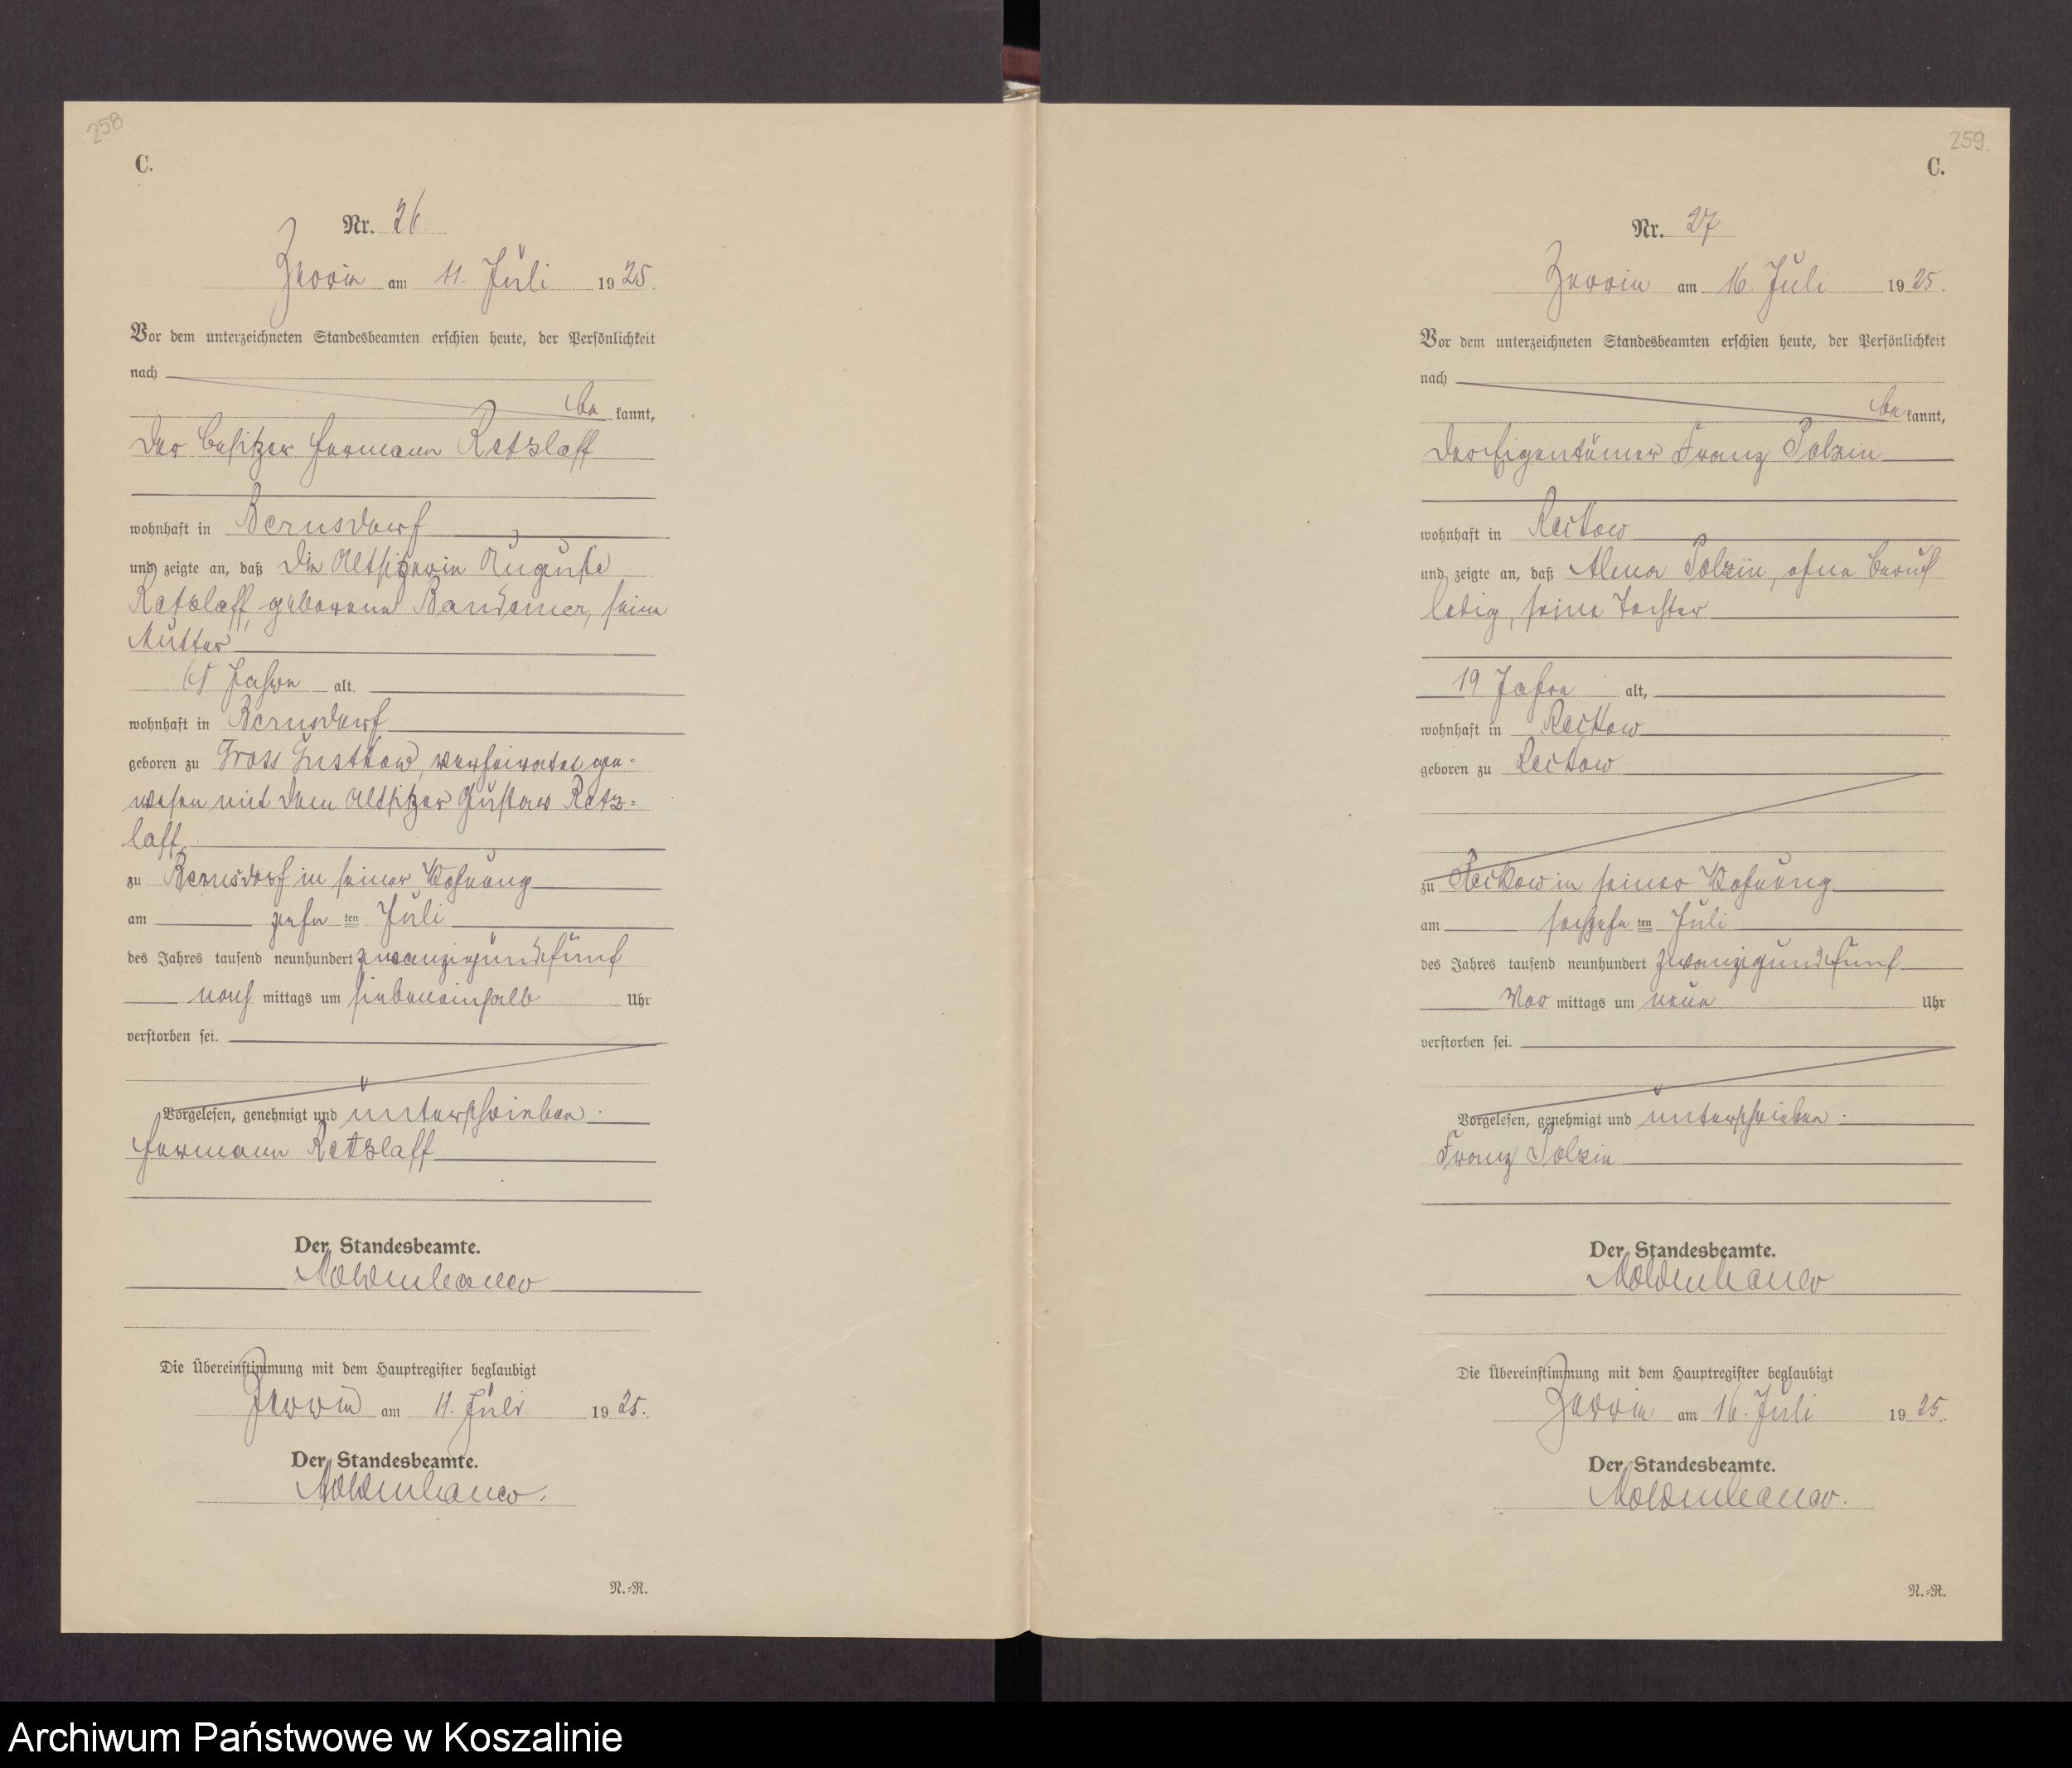 258
C.
Nr. 26
Zerrin am 11. Juli 1925.
Vor dem unterzeichneten Standesbeamten erschien heute, der Persönlichkeit
nach
be kannt,
der Besitzer Hermann Retzlaff
wohnhaft in Bernsdorf
und zeigte an, daß die Altsitzerin Auguste
Retzlaff, geborene Bandemer, seine
Mutter
Jahre alt.
wohnhaft in Bernsdorf
geboren zu Gross Gustkow, verheiratet ge-
wesen mit dem Altsitzer Gustav Retz-
laff,
zu Bernsdorf in seiner Wohnung
am zehn ten Juli
des Jahres tausend neunhundert zwanzigundfünf
nach mittags um siebeneinhalb Uhr
verstorben sei.
Vorgelesen, genehmigt und unterschrieben.
Hermann Retzlaff
Der Standesbeamte.
Moldenhauer
Die Übereinstimmung mit dem Hauptregister beglaubigt
Zerrin am 11. Juli 1925.
Der Standesbeamte.
Moldenhauer.
N.-R.
259.
C.
Nr. 27
Zerrin am 16. Juli 1925.
Vor dem unterzeichneten Standesbeamten erschien heute, der Persönlichkeit
nach
be kannt,
der Eigentümer Franz Polzin
wohnhaft in Reckow
und zeigte an, daß Alma Polzin, ohne Beruf
ledig, seine Tochter
19 Jahre alt,
wohnhaft in Reckow
geboren zu Reckow
zu Reckow in seiner Wohnung
am sechzehn ten Juli
des Jahres tausend neunhundert zwanzigundfünf
Vor mittags um neun Uhr
verstorben sei.
Vorgelesen, genehmigt und unterschrieben.
Franz Polzin
Der Standesbeamte.
Moldenhauer
Die Übereinstimmung mit dem Hauptregister beglaubigt
Zerrin am 16. Juli 1925.
Der Standesbeamte.
Moldenhauer.
N.-R.
Archiwum Państwowe w Koszalinie